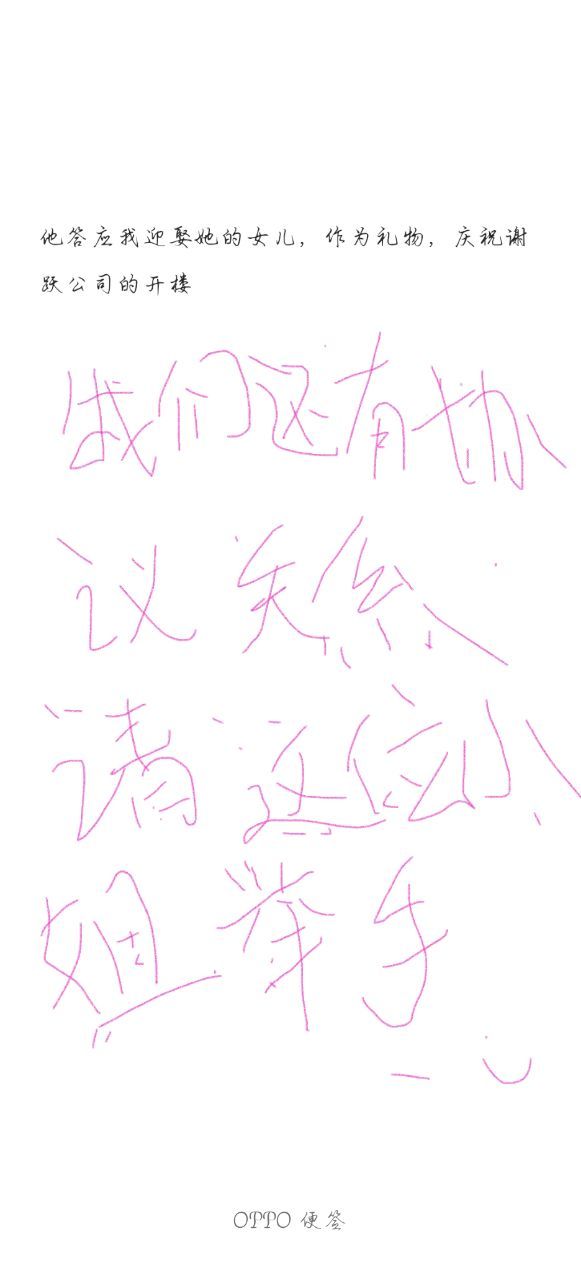 他答应我迎娶她的女儿，作为礼物，庆祝谢
跃公司的开楼
我们还有协
议关系
请这位小
姐举手
OPPO 便签